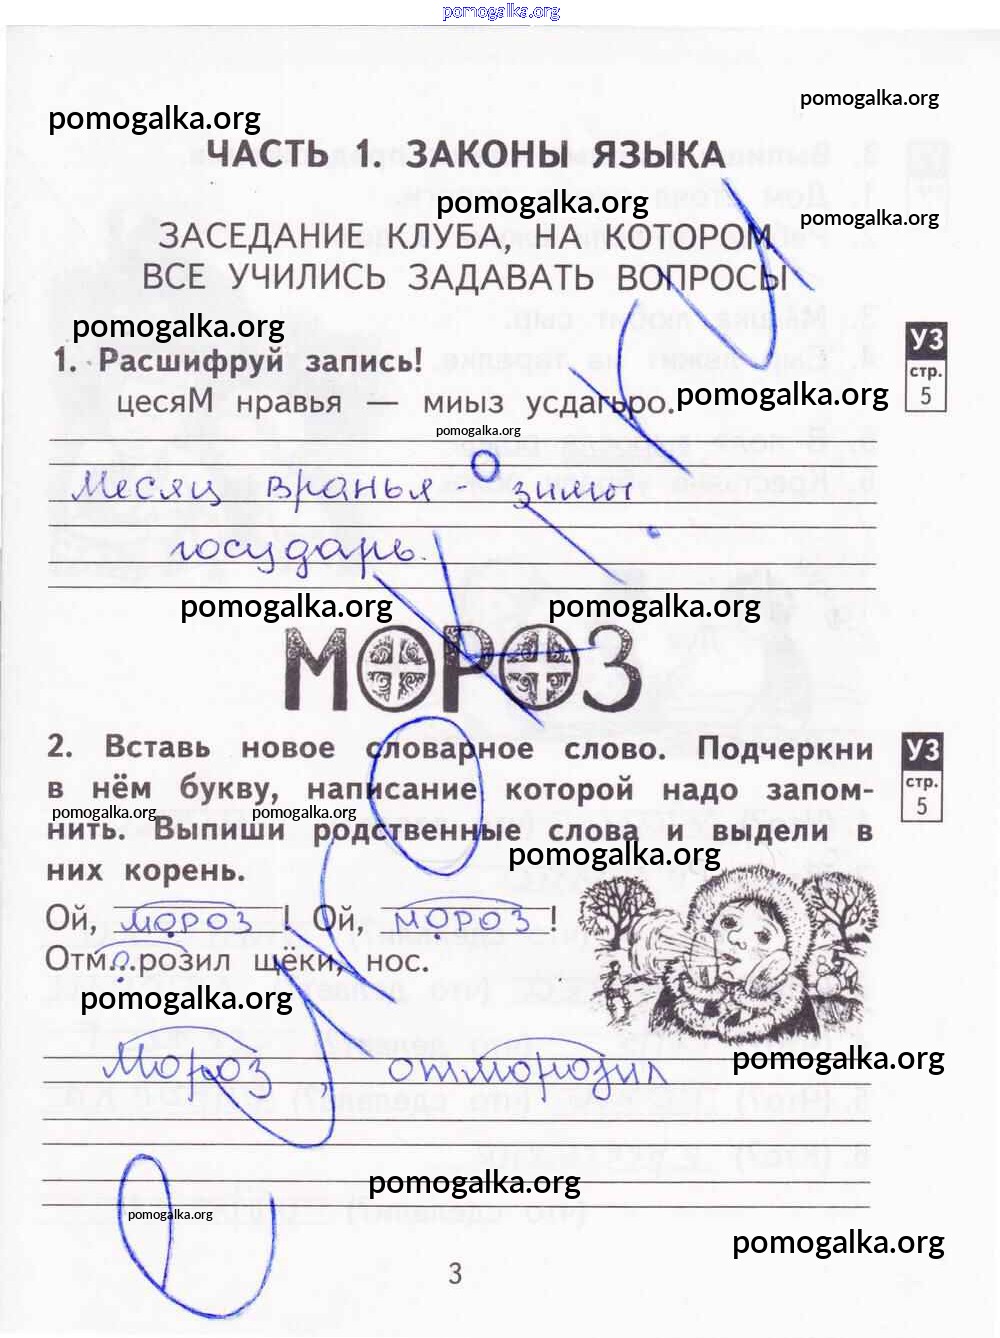 pomogalka.org
pomogalka.org
pomogalka.org
ЧАСТЬ 1. ЗАКОНЫ ЯЗЫКА
pomogalka.org
pomogalka.org
ЗАСЕДАНИЕ КЛУБА, НА КОТОРОМ
ВСЕ УЧИЛИСЬ ЗАДАВАТЬ ВОПРОСЫ
pomogalka.org
УЗ
стр.
5
1. Расшифруй запись!
цесяМ нравья — миыз усдагьро.
pomogalka.org
pomogalka.org
Месяц вранья - зимы
государь.
pomogalka.org
pomogalka.org
МОРОЗ
2. Вставь новое словарное слово. Подчеркни
УЗ
стр.
5
в нём букву, написание которой надо запом-
pomogalka.org
pomogalka.org
нить. Выпиши родственные слова и выдели в
pomogalka.org
них корень.
Ой, мороз ! Ой, мороз !
Отм...розил щёки, нос.
о
pomogalka.org
мороз отморозил
pomogalka.org
pomogalka.org
pomogalka.org
pomogalka.org
3